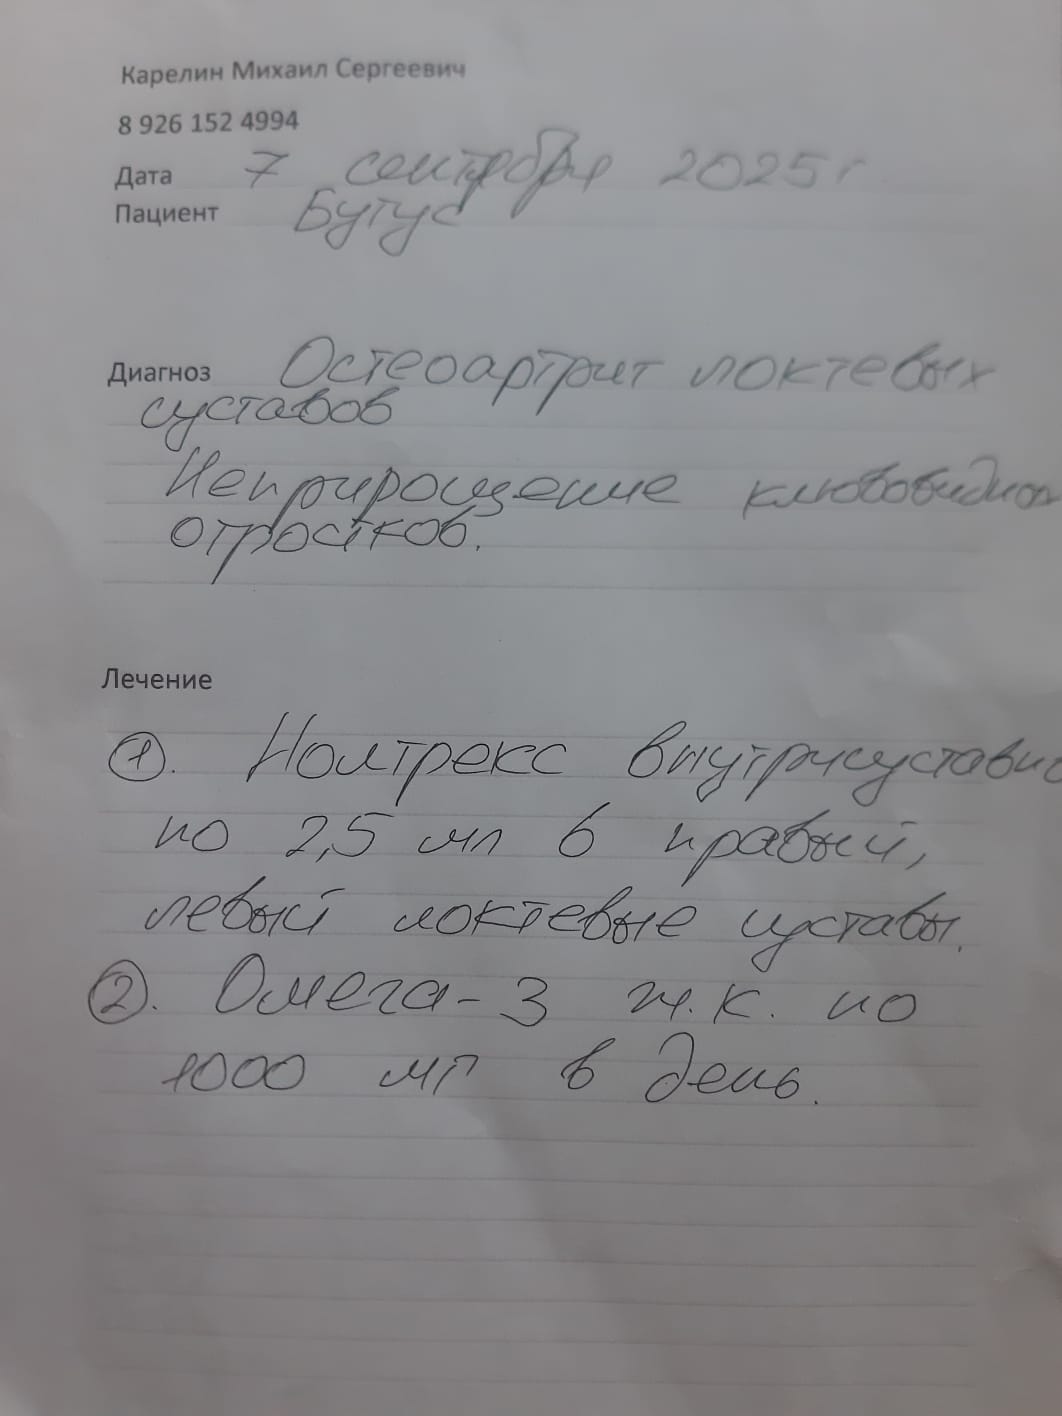 Карелин Михаил Сергеевич
8 926 152 4994
Дата 7 сентября 2025 г
Пациент Бугус
Диагноз Остеоартрит локтевых
суставов
Неприрощение клювовидных
отростков.
Лечение
1. Нолтрекс внутрисуставно
по 2,5 мл в правый,
левый локтевые суставы.
2. Омега-3 ж.к. по
1000 мг в день.